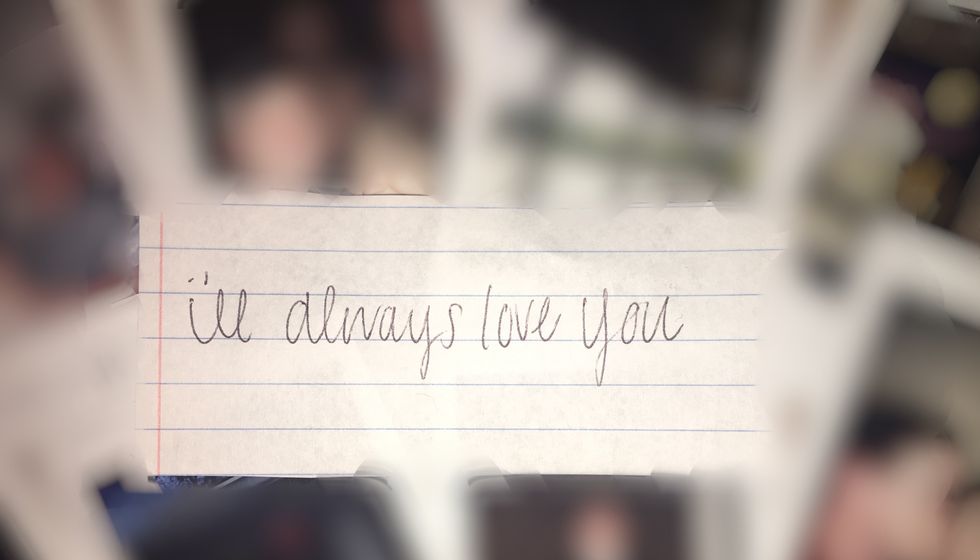 i'll always love you